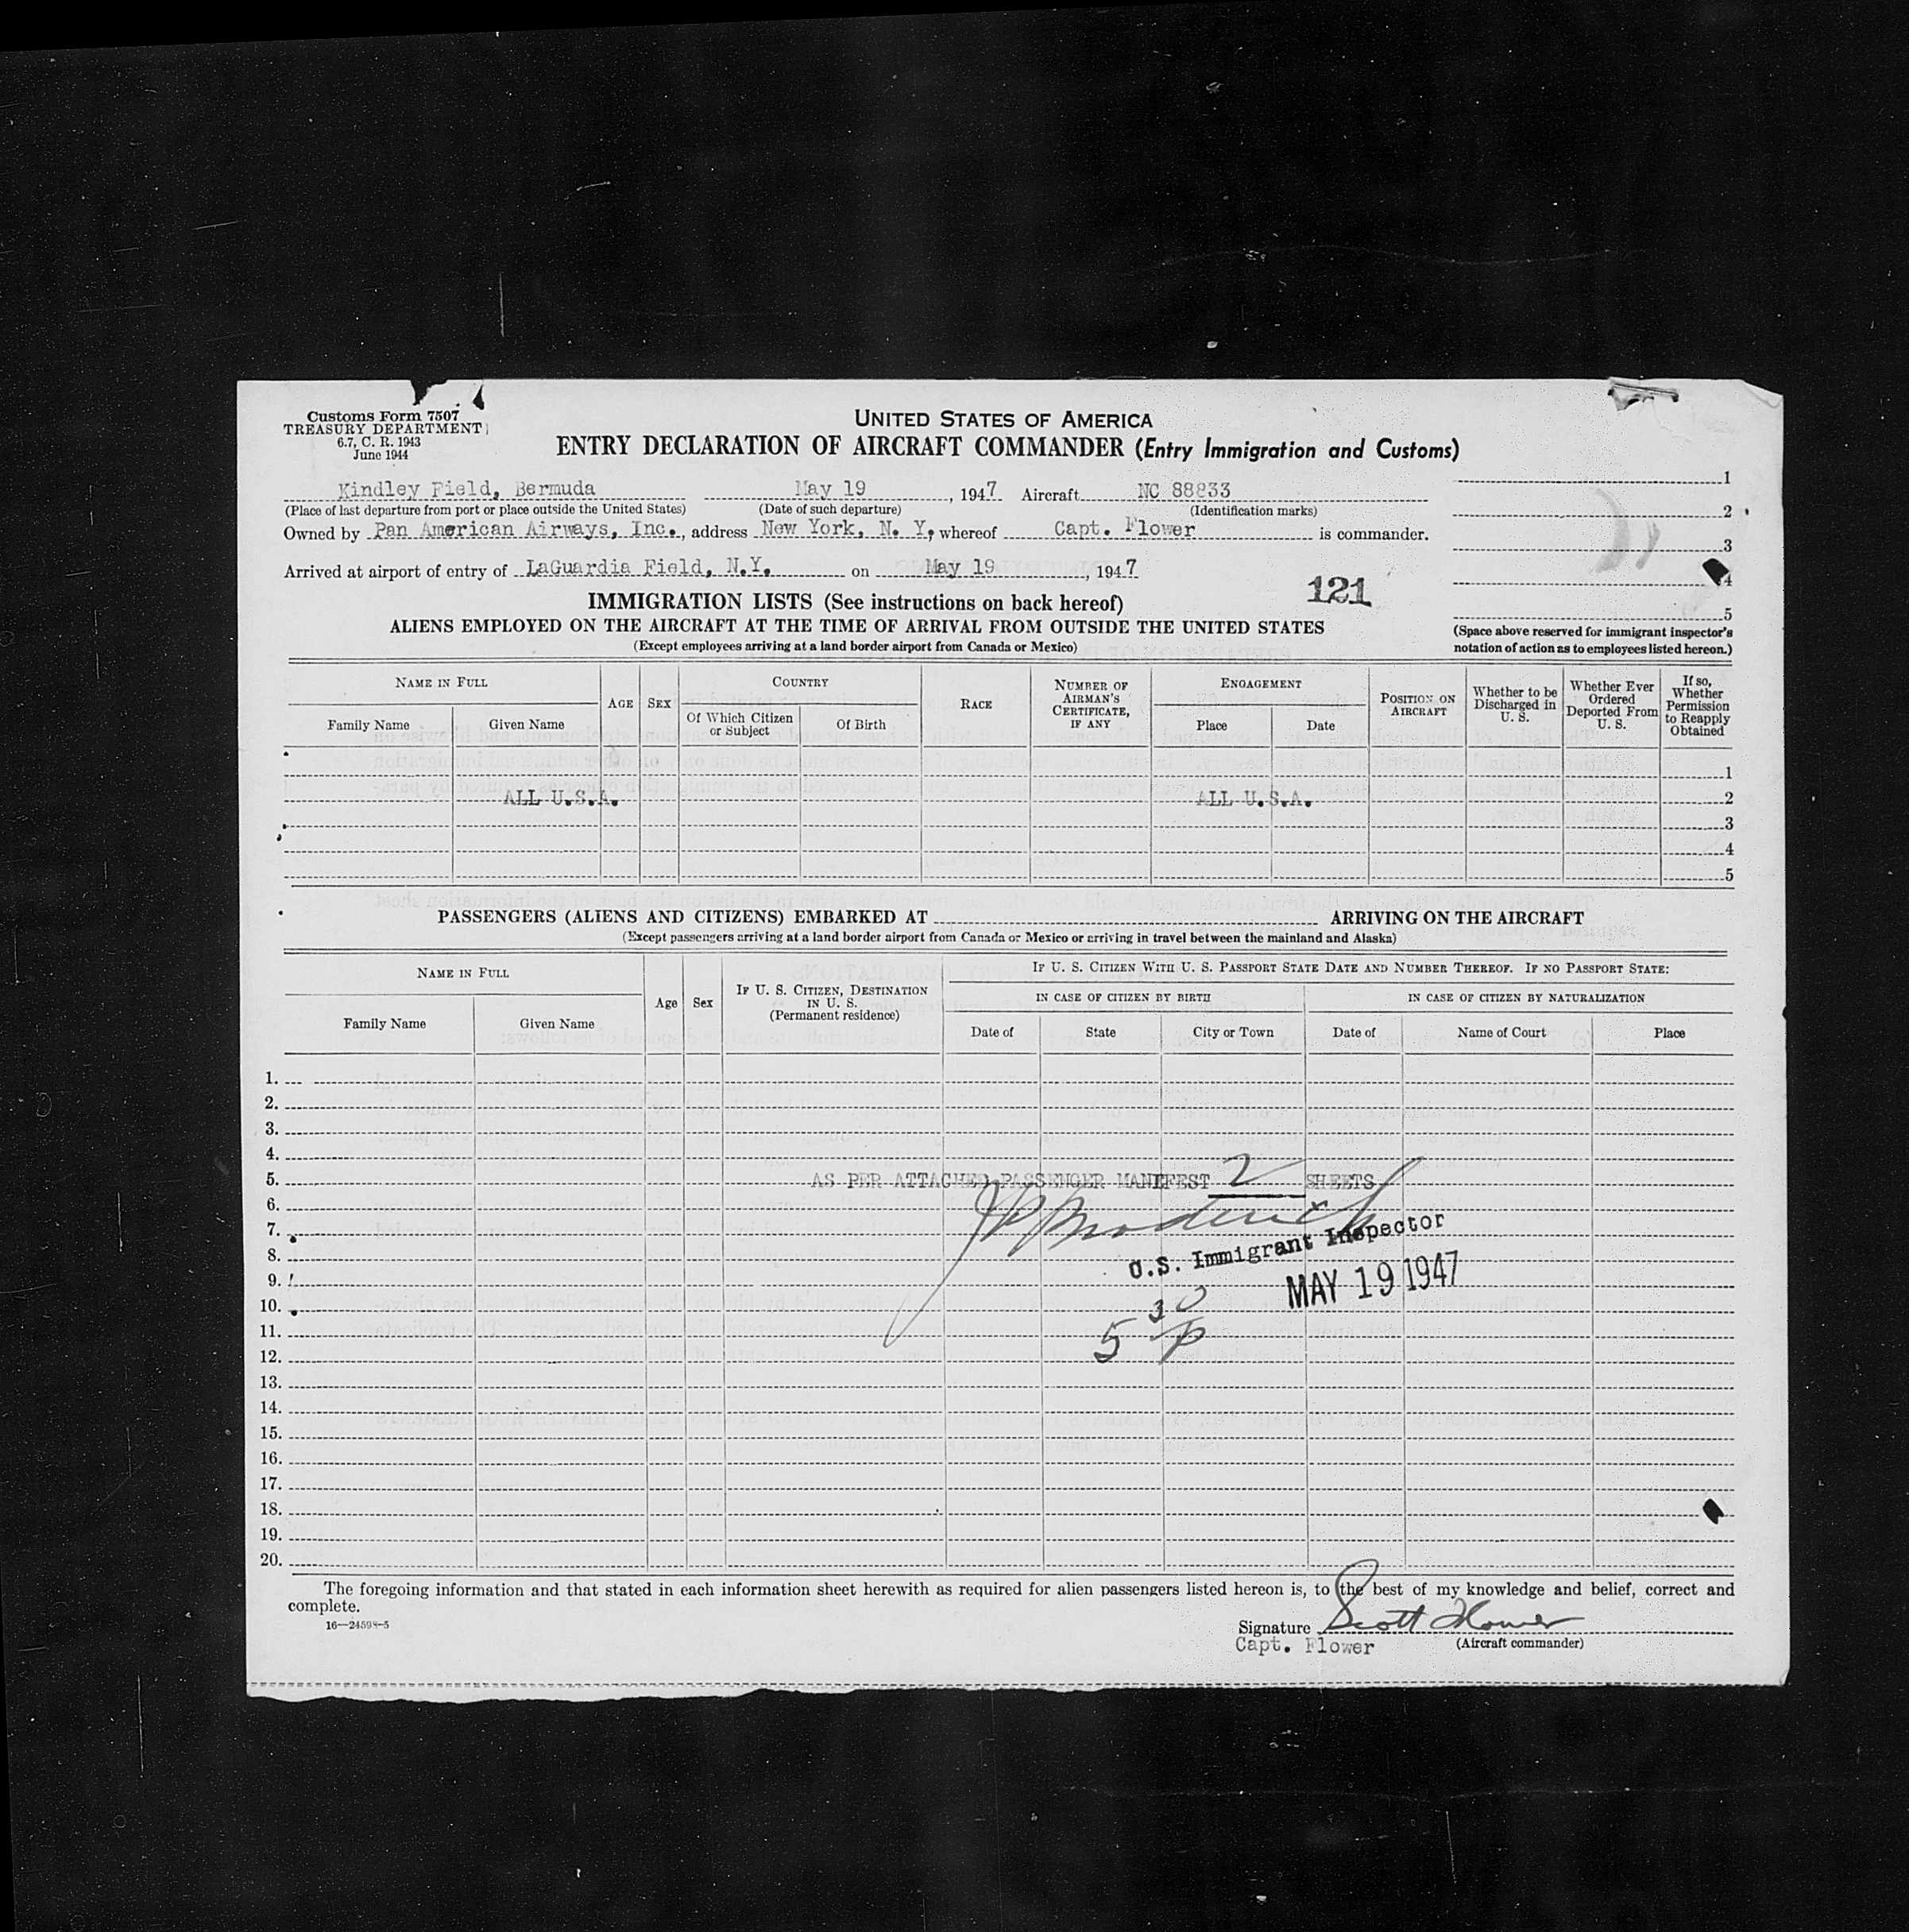 Customs Form 7507
TREASURY DEPARTMENT
6.7, C. R. 1943
June 1944
UNITED STATES OF AMERICA
ENTRY DECLARATION OF AIRCRAFT COMMANDER (Entry Immigration and Customs)
Kindley Field, Bermuda May 19, 1947 Aircraft NC 88833
(Place of last departure from port or place outside the United States) (Date of such departure) (Identification marks)
Owned by Pan American Airways, Inc., address New York, N. Y. whereof Capt. Flower is commander.
Arrived at airport of entry of LaGuardia Field, N.Y. on May 19, 1947
121
1
2
3
4
5
(Space above reserved for immigrant inspector's
notation of action as to employees listed hereon.)
IMMIGRATION LISTS (See instructions on back hereof)
ALIENS EMPLOYED ON THE AIRCRAFT AT THE TIME OF ARRIVAL FROM OUTSIDE THE UNITED STATES
(Except employees arriving at a land border airport from Canada or Mexico)
NAME IN FULL
Family Name Given Name
AGE SEX
COUNTRY
Of Which Citizen or Subject Of Birth
RACE
NUMBER OF AIRMAN'S CERTIFICATE, IF ANY
ENGAGEMENT
Place Date
POSITION ON AIRCRAFT
Whether to be Discharged in U. S.
Whether Ever Ordered Deported From U. S.
If so, Whether Permission to Reapply Obtained
1
ALL U.S.A. ALL U.S.A. 2
3
4
5
PASSENGERS (ALIENS AND CITIZENS) EMBARKED AT ARRIVING ON THE AIRCRAFT
(Except passengers arriving at a land border airport from Canada or Mexico or arriving in travel between the mainland and Alaska)
NAME IN FULL
Family Name Given Name
Age Sex
IF U. S. CITIZEN, DESTINATION IN U. S. (Permanent residence)
IF U. S. CITIZEN WITH U. S. PASSPORT STATE DATE AND NUMBER THEREOF. IF NO PASSPORT STATE:
IN CASE OF CITIZEN BY BIRTH IN CASE OF CITIZEN BY NATURALIZATION
Date of State City or Town Date of Name of Court Place
1.
2.
3.
4.
5. AS PER ATTACHED PASSENGER MANIFEST 2 SHEETS
6.
7. Broderick
8. U.S. Immigrant Inspector
9. MAY 19 1947
10.
11. 5 30 P
12.
13.
14.
15.
16.
17.
18.
19.
20.
The foregoing information and that stated in each information sheet herewith as required for alien passengers listed hereon is, to the best of my knowledge and belief, correct and
complete.
16—24598-5
Signature Scott Flower
Capt. Flower (Aircraft commander)